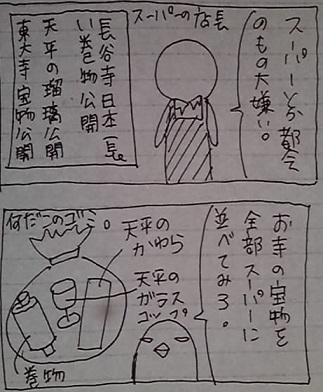 スーパーとか都会
のもの大嫌い。
スーパーの店長
長谷寺日本一長
い巻物公開
天平の瑠璃公開
東大寺宝物公開
お寺の宝物を
全部スーパーに
並べてみろ。
天平の
かわら
天平の
ガラス
コップ
何だこのゴミ。
巻物